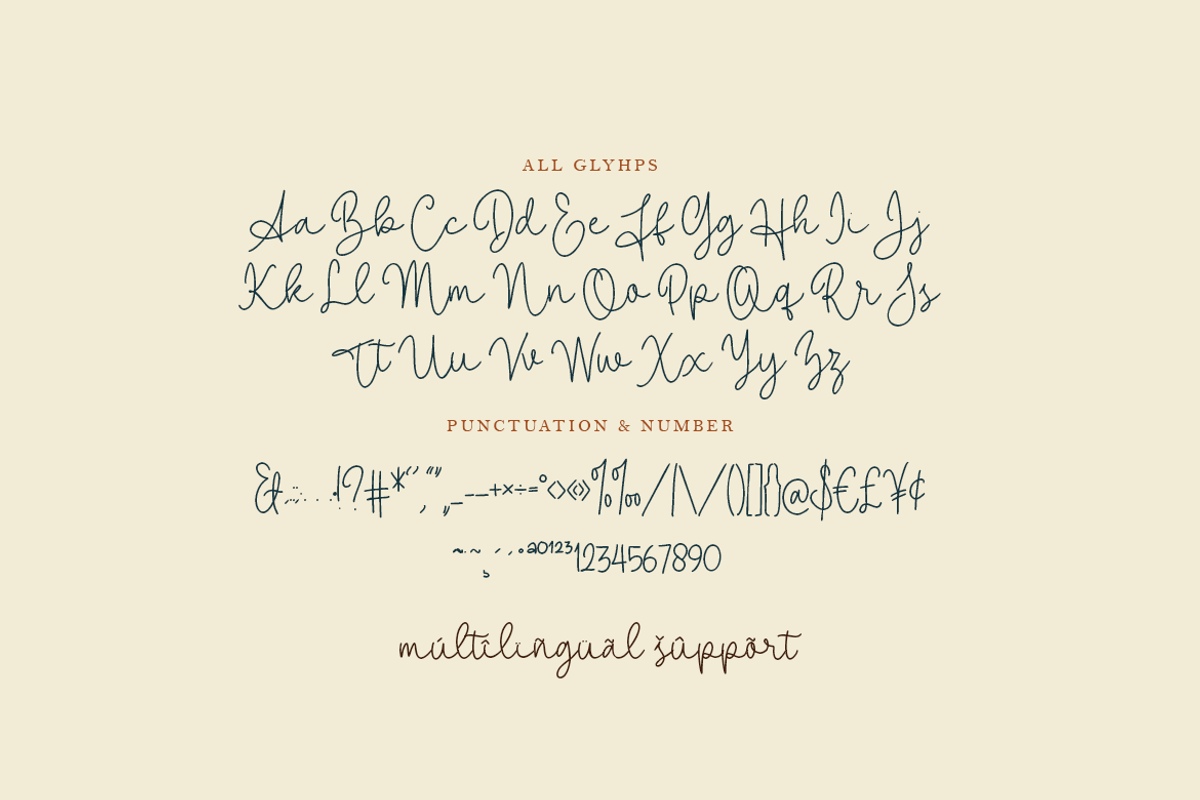 ALL GLYHPS
Aa Bb Cc Dd Ee Ff Gg Hh Ii Jj
Kk Ll Mm Nn Oo Pp Qq Rr Ss
Tt Uu Vv Ww Xx Yy Zz
PUNCTUATION & NUMBER
&,;:...•!?#*‘’“”‚„_–—+×÷=°<>‹›«»%‰/|\⁄()[]{}@$€£¥¢
ao1231234567890
múltîlïñgüãl šûppõrt